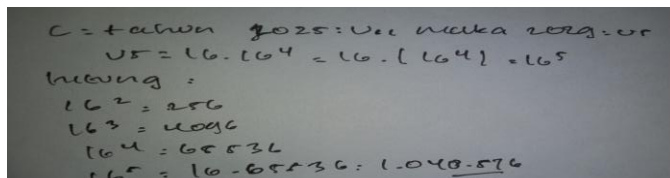 C = tahun 2025 : U11 maka 2029 = U5
U5 = 16 . 16⁴ = 16 . ( 16⁴ ) = 16⁵
hitung :
16² = 256
16³ = 4096
16⁴ = 65536
16⁵ = 16 . 65536 = 1.048.576